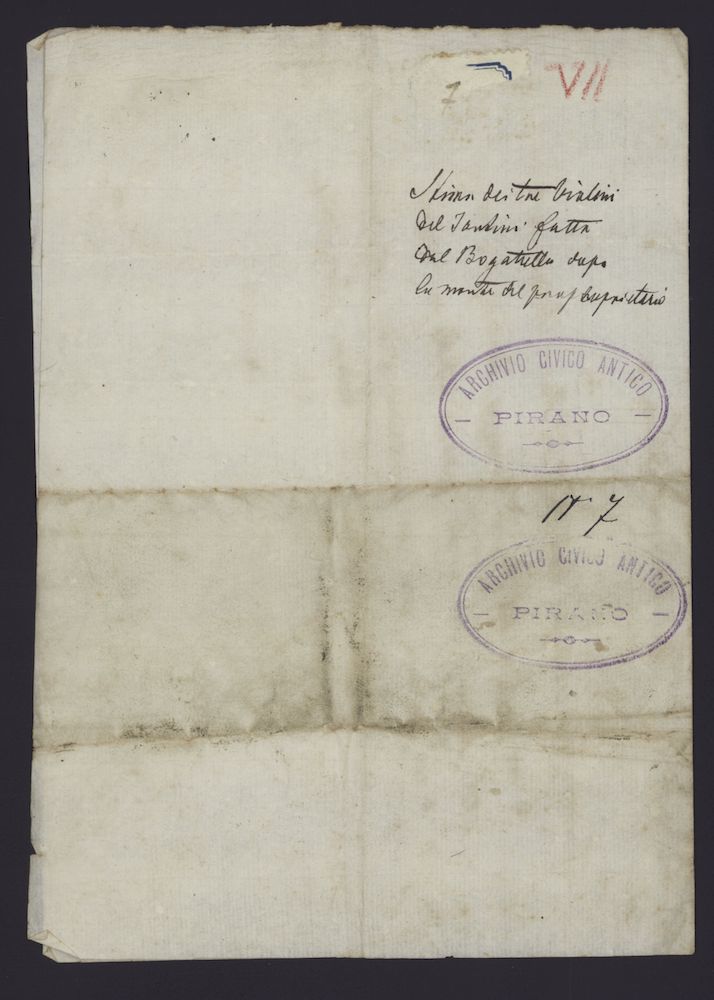 1
VII
Stima dei tre Violini
del Tartini fatta
dal Bogatella dopo
la morte del proprietario
ARCHIVIO CIVICO ANTICO
PIRANO
N 7
ARCHIVIO CIVICO ANTICO
PIRANO